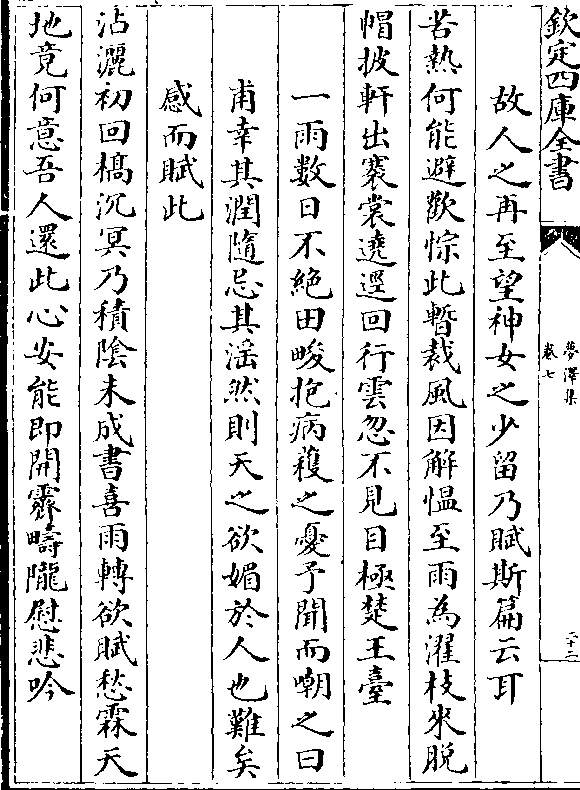 欽定四庫全書
夢澤集
卷七
二十二
故人之再至望神女之少留乃賦斯篇云耳
苦熱何能避歡悰此暫裁風因解愠至雨為濯枝來脱
帽披軒出褰裳遶逕回行雲忽不見目極楚王臺
一雨數日不絶田畯抱病穫之憂予聞而嘲之曰
甫幸其潤隨忌其滛然則天之欲媚於人也難矣
感而賦此
沾灑初回槁沉冥乃積陰未成書喜雨轉欲賦愁霖天
地竟何意吾人還此心安能即開霽疇隴慰悲吟